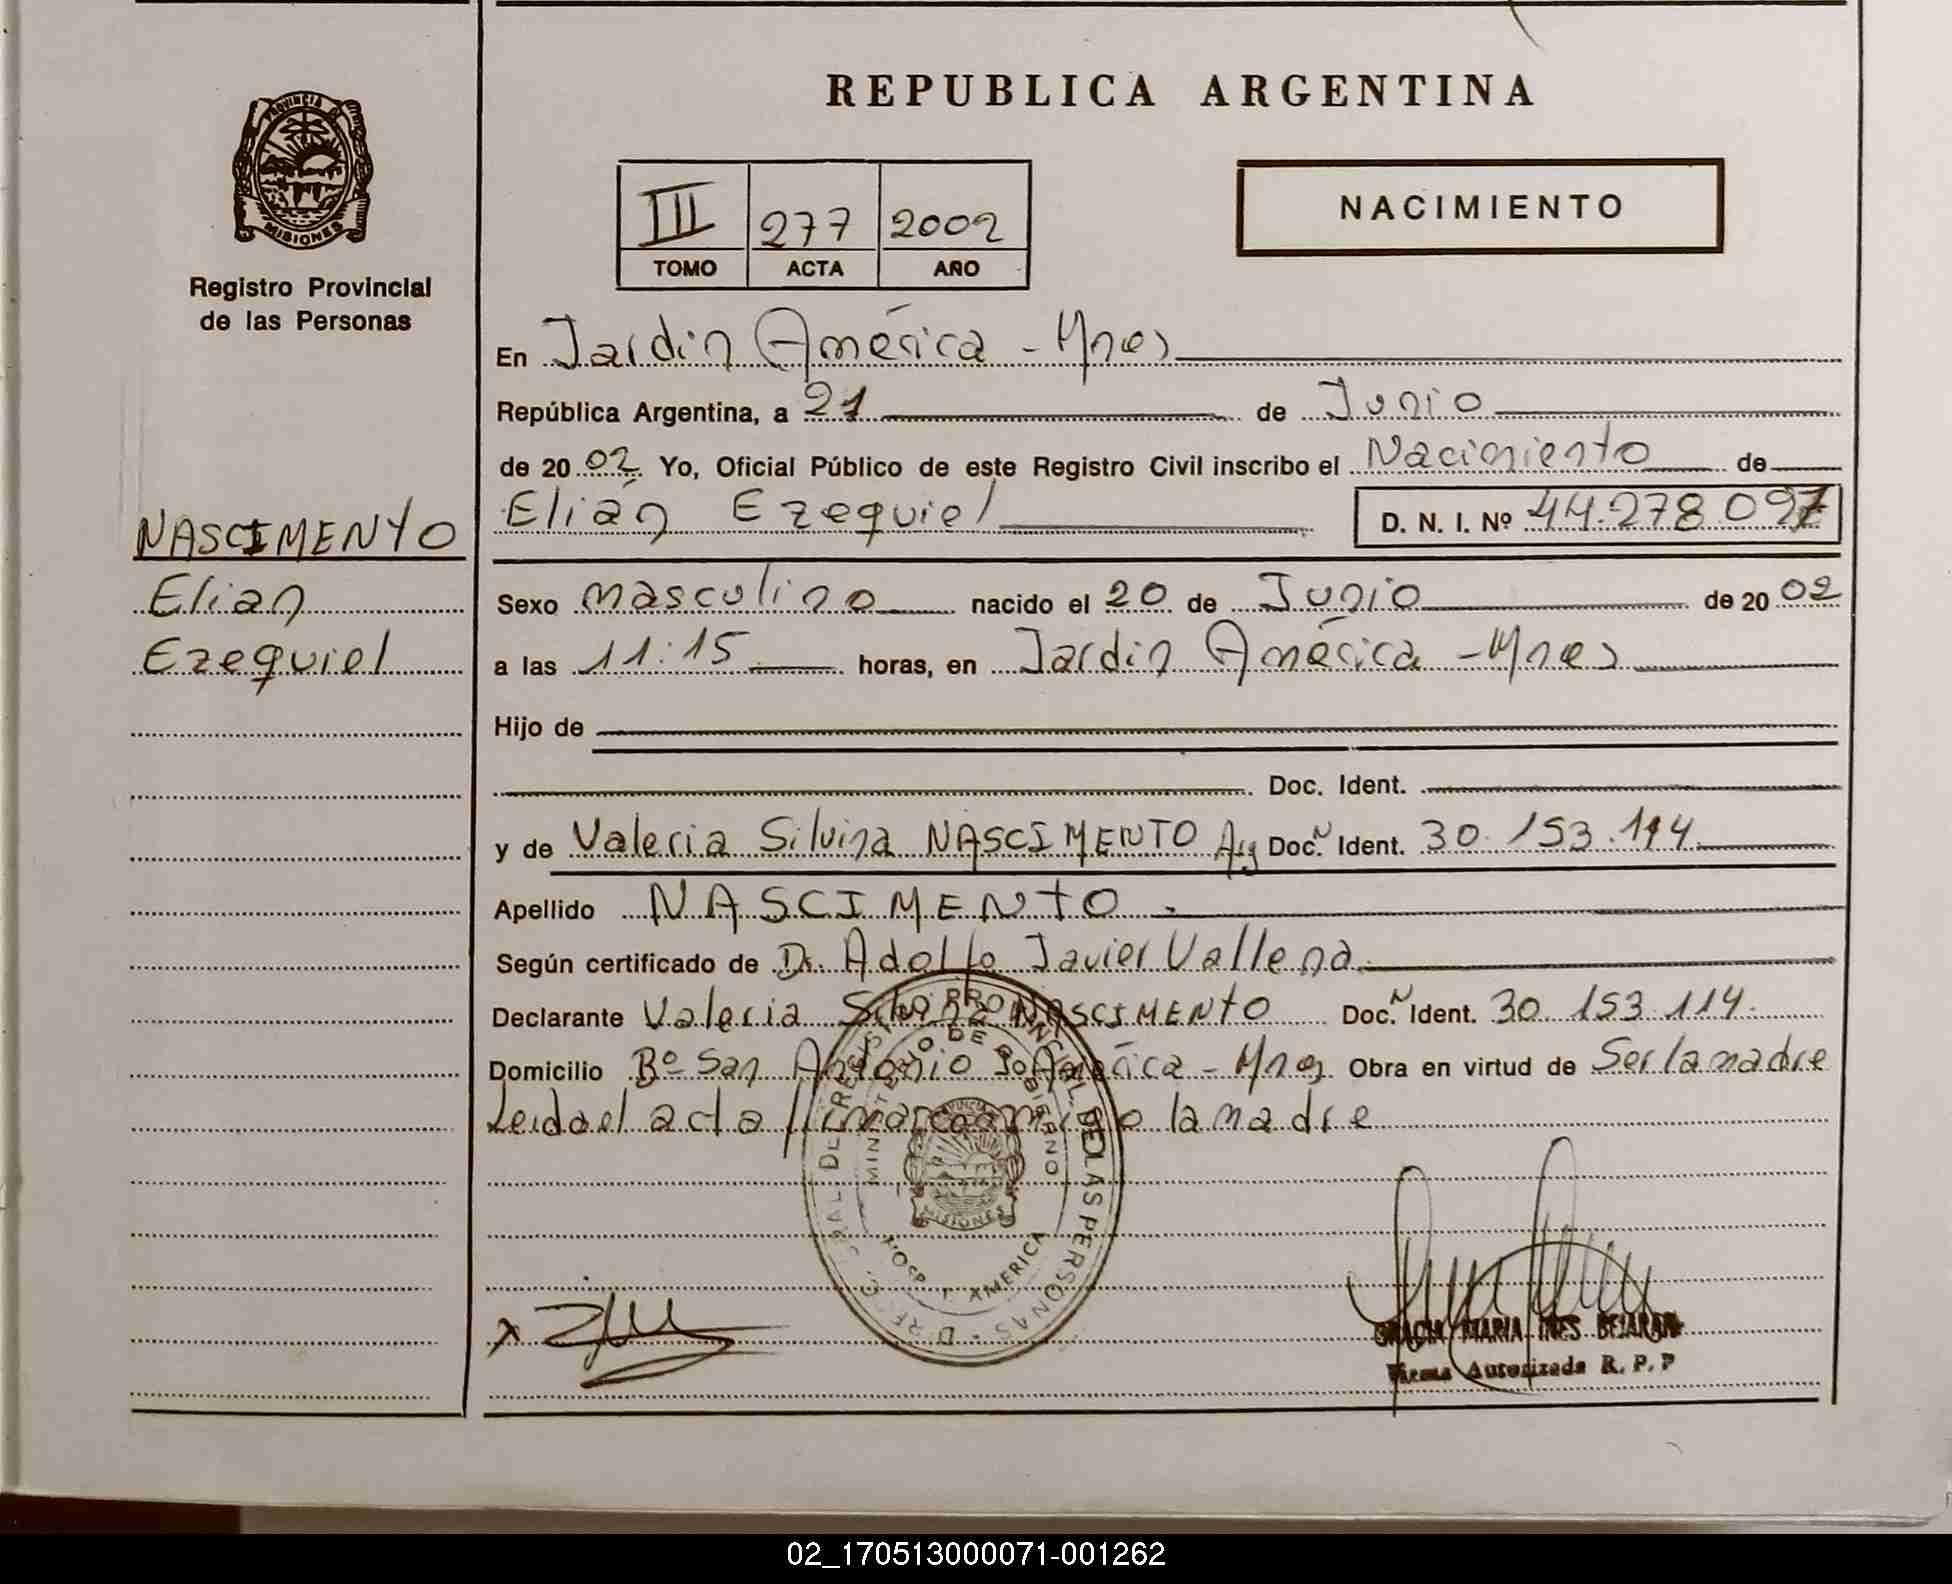 REPUBLICA ARGENTINA
PROVINCIA DE
MISIONES
Registro Provincial
de las Personas
III 277 2002
TOMO ACTA AÑO
NACIMIENTO
En Jardin América - Mnes
República Argentina, a 21 de Junio
de 2002 Yo, Oficial Público de este Registro Civil inscribo el Nacimiento de
Elián Ezequiel D. N. I. Nº 44.278.097
NASCIMENTO
Elian
Ezequiel
Sexo masculino nacido el 20 de Junio de 2002
a las 11:15 horas, en Jardin América - Mnes
Hijo de
Doc. Ident.
y de Valeria Silvina NASCIMENTO Arg Doc. N Ident. 30.153.114
Apellido NASCIMENTO
Según certificado de Dr. Adolfo Javier Vallena
Declarante Valeria Silvina NASCIMENTO Doc. N Ident. 30.153.114.
Domicilio Bº San Antonio J. América - Mnes Obra en virtud de Ser la madre
Leida el acta firma la madre
MINISTERIO DE GOBIERNO
MISIONES
HOSP. J. AMERICA
GRACIA MARIA INES BEJARAN
Firma Autorizada R. P. P
02_170513000071-001262